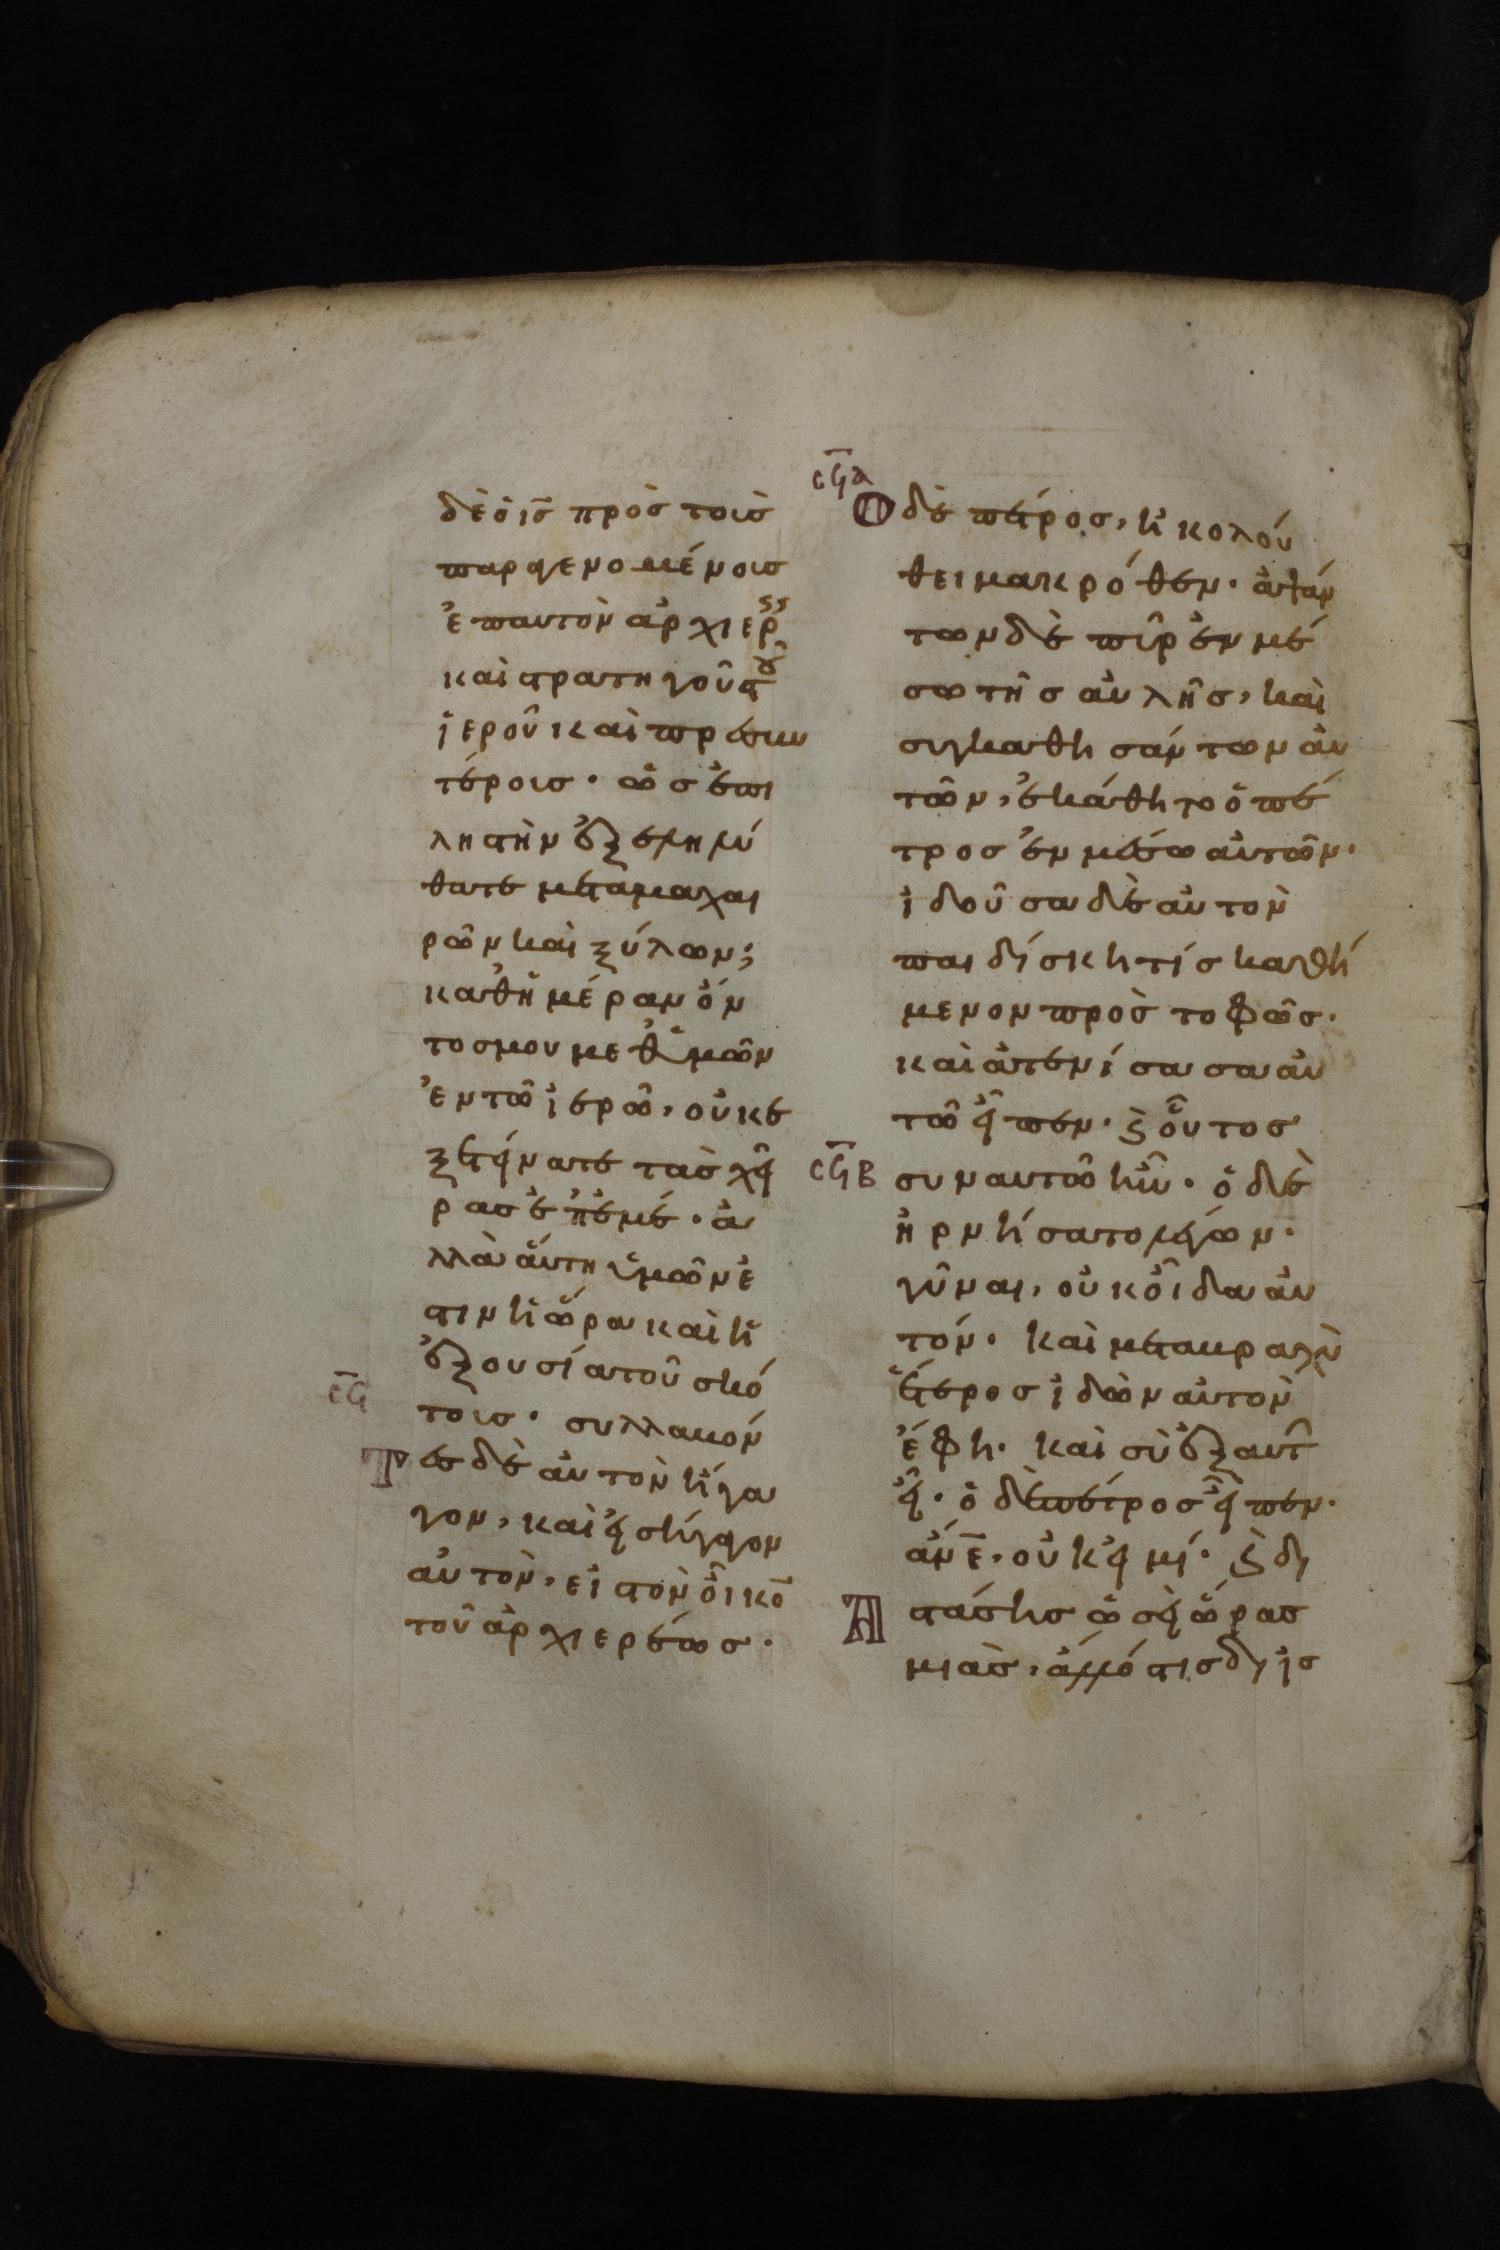 δὲ ὁ ι̅ς̅ πρὸς τοὺς
παραγενομένους
ἐπ αυτὸν ἀρχιερ
καὶ στρατηγοῦς τ
ἱεροῦ καὶ πρεσβυ
τέρους· ὡς ἐπι
ληστὴν ἐξεληλύ
θατε μετὰ μαχαι
ρῶν καὶ ξύλων;
καθ ἡμέραν ὄν
τος μου μεθ ὑμῶν
ἐν τῶ ἱερῶ, οὐκ ε
ξετείνατε τὰς χεῖ
ρας ἐπ ἐμέ· ἀ
λλὰ ἅυτη ὑμῶν ἐ
στιν ἡ ὥρα καὶ ἡ
ἐξουσία τοῦ σκό
τους· συλλαβόν
Τες δὲ αὐτὸν ἤγα
γον, καὶ εἰσήγαγον
αὐτὸν, εἰς τὸν οἶκο̅
τοῦ ἀρχιερέως·
σ̅ϟ̅α
Ο δὲ πέτρος, ἠκολού
θει μακρόθεν· ἁψάν
των δὲ πῦρ ἐν μέ
σω τῆς αὐλῆς, καὶ
συγκαθησάντων αὐ
τῶν, ἐκάθητο ὁ πέ
τρος ἐν μέσω αὐτῶν·
ἰδοῦσα δὲ αὐτὸν
παιδίσκη τίς καθή
μενον πρὸς το φῶς·
καὶ ἀτενίσασα αὐ
τῶ εἶπεν· ϗ οὗτος
σ̅ϟ̅β συν αυτῶ ἦν· ὁ δὲ
ἠρνήσατο λέγων·
γῦναι, οὐκ οἶδα αὐ
τόν· καὶ μετα βραχὺ
ἕτερος ἰδὼν αὐτὸν
ἔφη· καὶ σὺ ἐξ αυτ
εἶ· ὁ δὲ πέτρος εἶπεν·
ἄν̅ε̅, οὐκ εἰμί· ϗ δι
Α στάσης ὡσεὶ ὥρας
μιᾶς, ἄλλός τις διϊσ